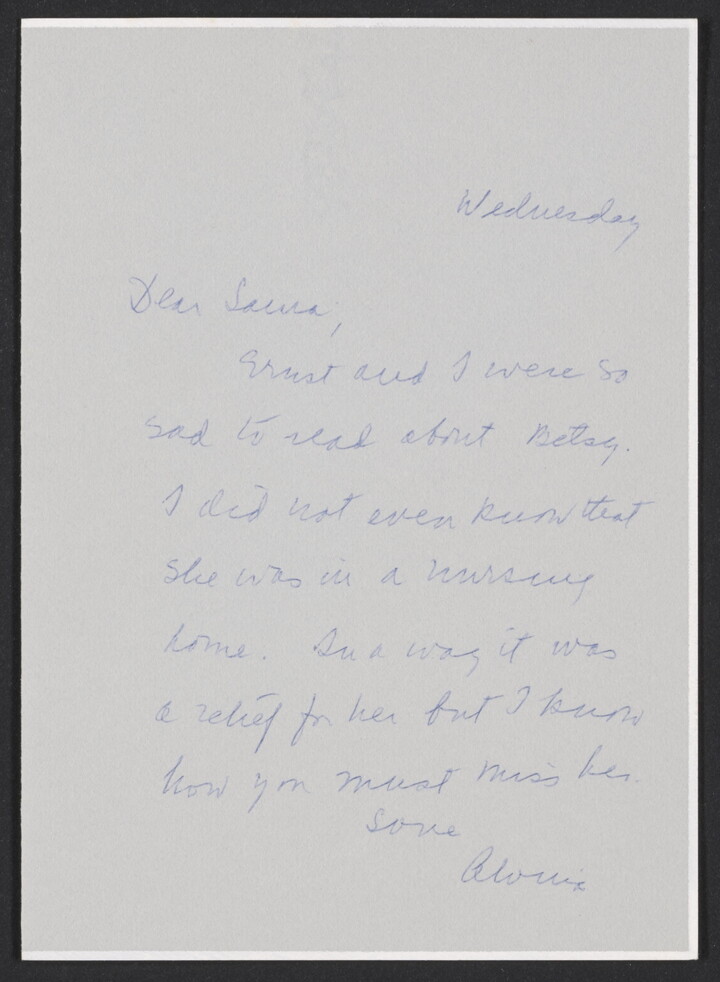 Wednesday
Dear Laura,
Ernst and I were so
sad to read about Betsy.
I did not even know that
she was in a nursing
home. In a way it was
a relief for her but I know
how you must miss her.
Love